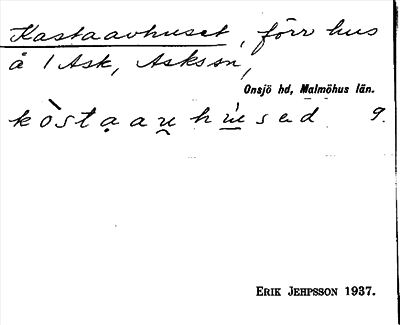 Kastaavhuset, förr hus
å 1 Ask, Asks sn,
Onsjö hd, Malmöhus län.
kòstạaṷ hús ed 9.
ERIK JEHPSSON 1937.